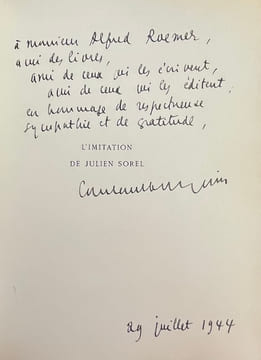 à Monsieur Alfred Roemer,
ami des livres,
ami de ceux qui les écrivent,
ami de ceux qui les éditent,
en hommage de respectueuse
sympathie et de gratitude,
L'IMITATION
DE JULIEN SOREL
29 juillet 1944